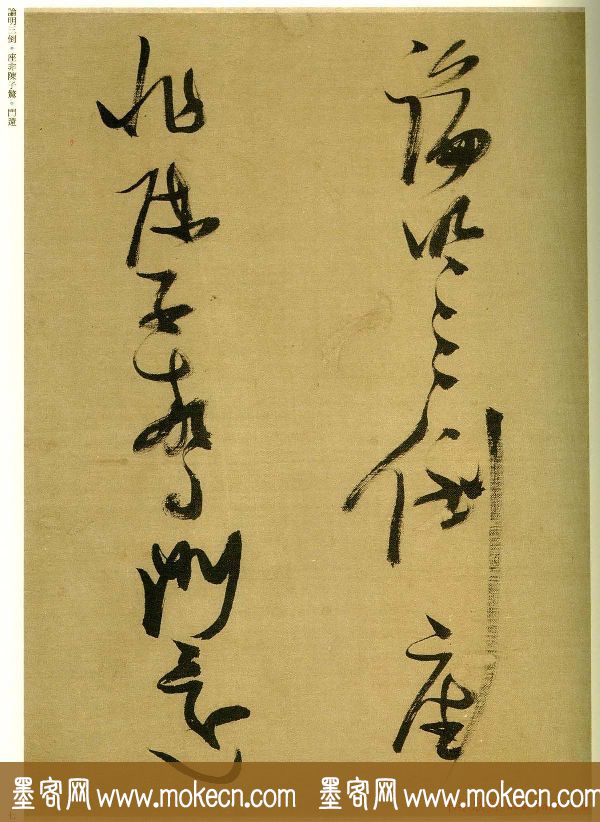 論明三倒。座非陳子驚。門還
論明三倒座
非陳子驚門還
墨客网 www.mokecn.com 墨客网 www.mokecn.com